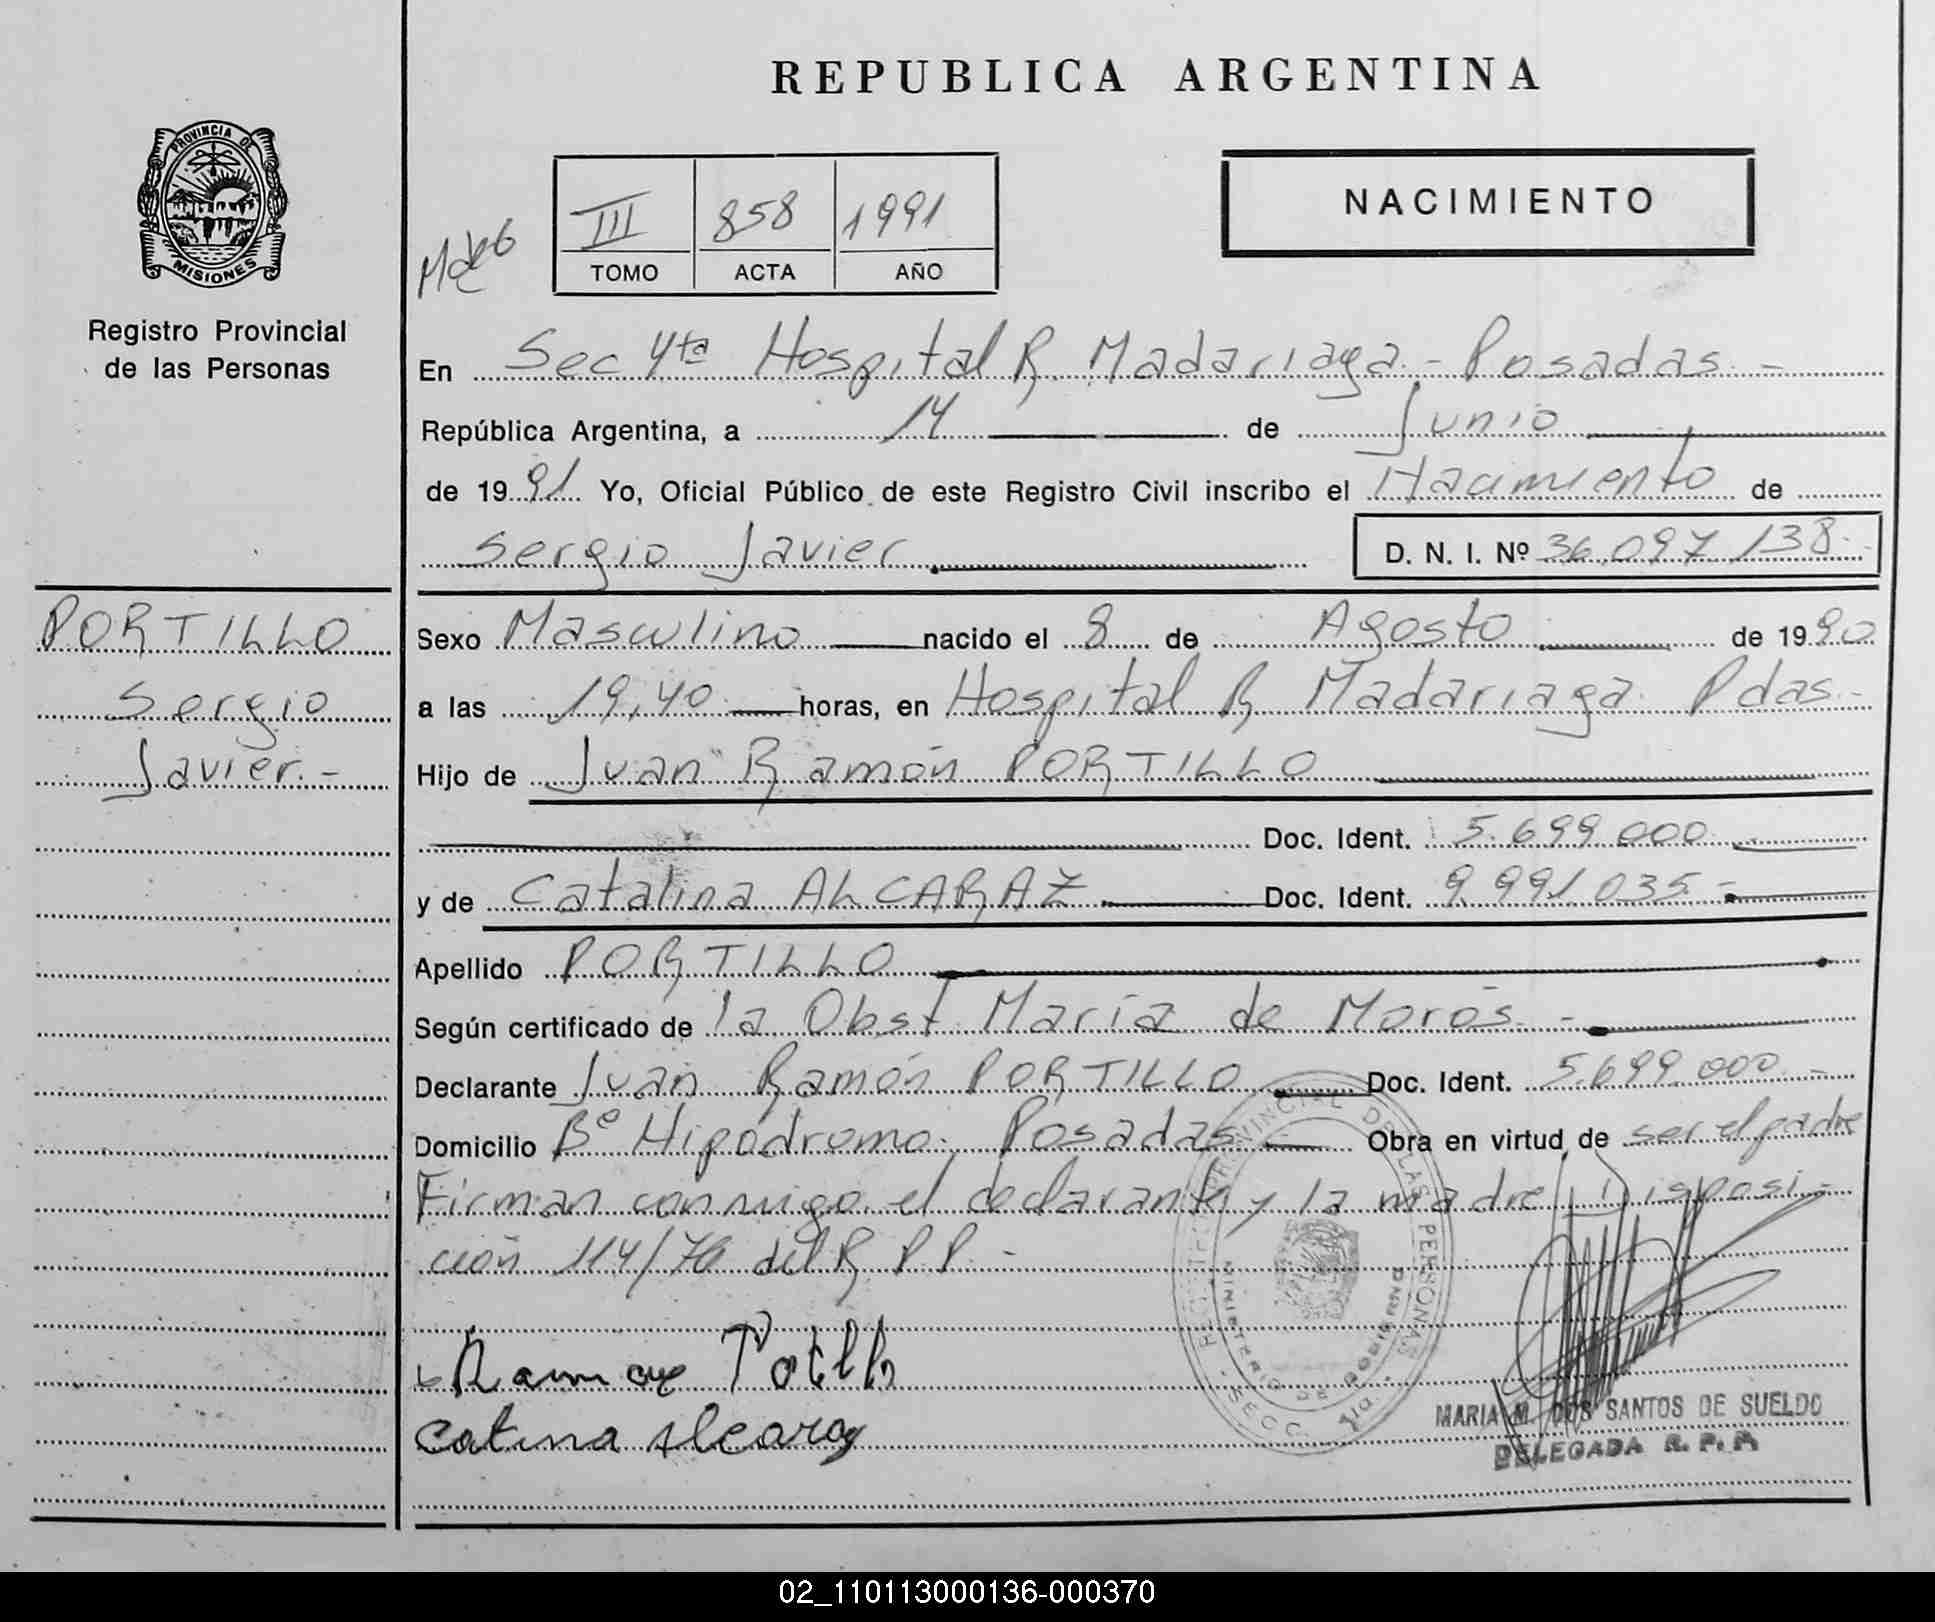 REPUBLICA ARGENTINA
PROVINCIA DE
MISIONES
Registro Provincial
de las Personas
III 858 1991
TOMO ACTA AÑO
NACIMIENTO
En Sec 4ta Hospital R. Madariaga - Posadas. -
República Argentina, a 14 de Junio
de 1991 Yo, Oficial Público de este Registro Civil inscribo el Nacimiento de
Sergio Javier D. N. I. Nº 36.097.138.
PORTILLO
Sergio
Javier. -
Sexo Masculino nacido el 8 de Agosto de 1990
a las 19,40 horas, en Hospital R Madariaga Pdas. -
Hijo de Juan Ramón PORTILLO
Doc. Ident. 5.699.000
y de Catalina ALCARAZ Doc. Ident. 9.991.035 -
Apellido PORTILLO
Según certificado de la Obst. María de Morós. -
Declarante Juan Ramón PORTILLO Doc. Ident. 5.699.000 -
Domicilio Bº Hipódromo. Posadas Obra en virtud de ser el padre
Firman conmigo el declarante y la madre Disposi-
ción 114/76 del R P P. -
REGISTRO PROVINCIAL DE LAS PERSONAS
MINISTERIO DE GOBIERNO
SECC. 4ta.
Catina Alcaraz
MARIA M. DOS SANTOS DE SUELDO
DELEGADA R. P. P.
02_110113000136-000370